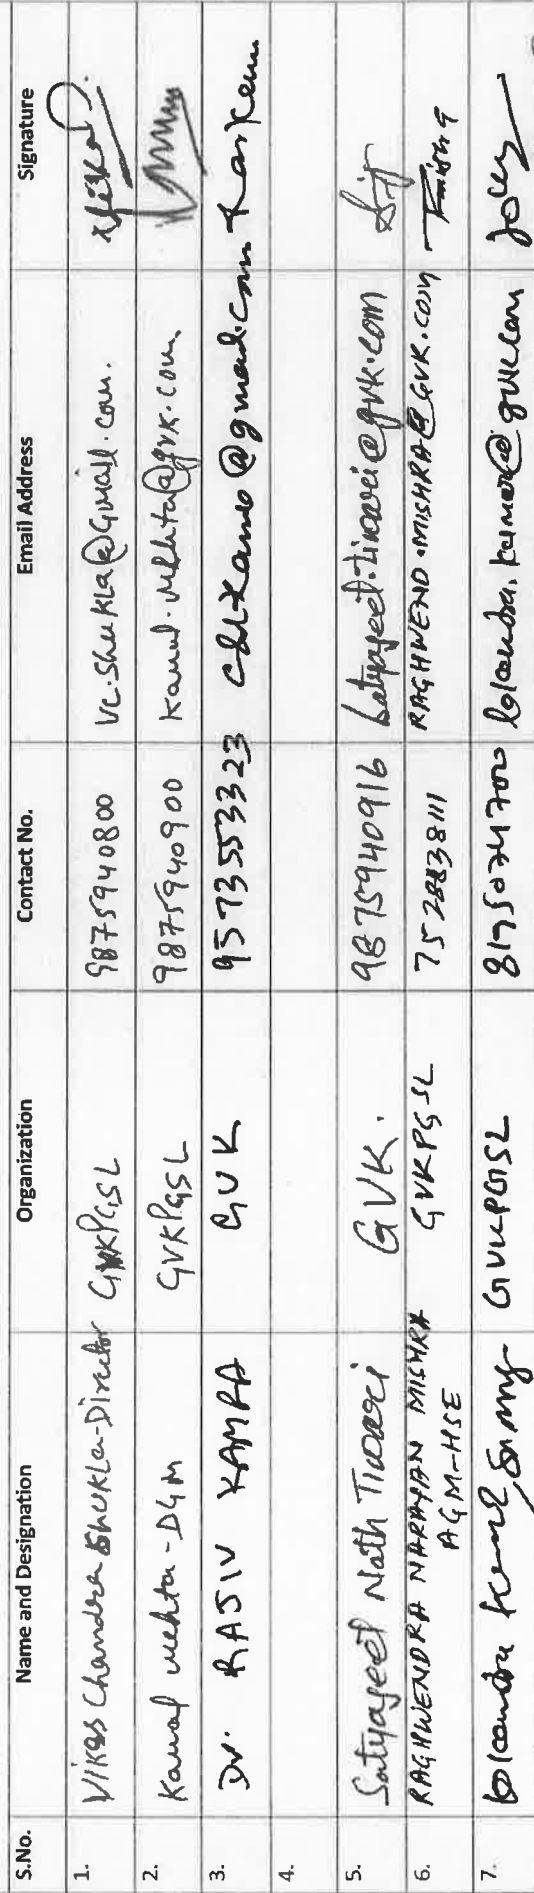 S.No. Name and Designation Organization Contact No. Email Address Signature
1. Vikas Chandra Shukla-Director GVKPGSL 9875940800 vc.shukla@Gmail.com.
2. Kamal Mehta-DGM GVKPGSL 9875940900 kamal.mehta@gvk.com.
3. Dr. RAJIV KAMRA GVK 9573553323
4.
5. Satyajeet Nath Tiwari GVK. 9875940916 Satyajeet.tiwari@gvk.com
6. RAGHWENDRA NARAYAN MISHRA GVKPGSL 7528838111 RAGHWEND.MISHRA@GVK.COM
AGM-HSE
7. GVKPGSL